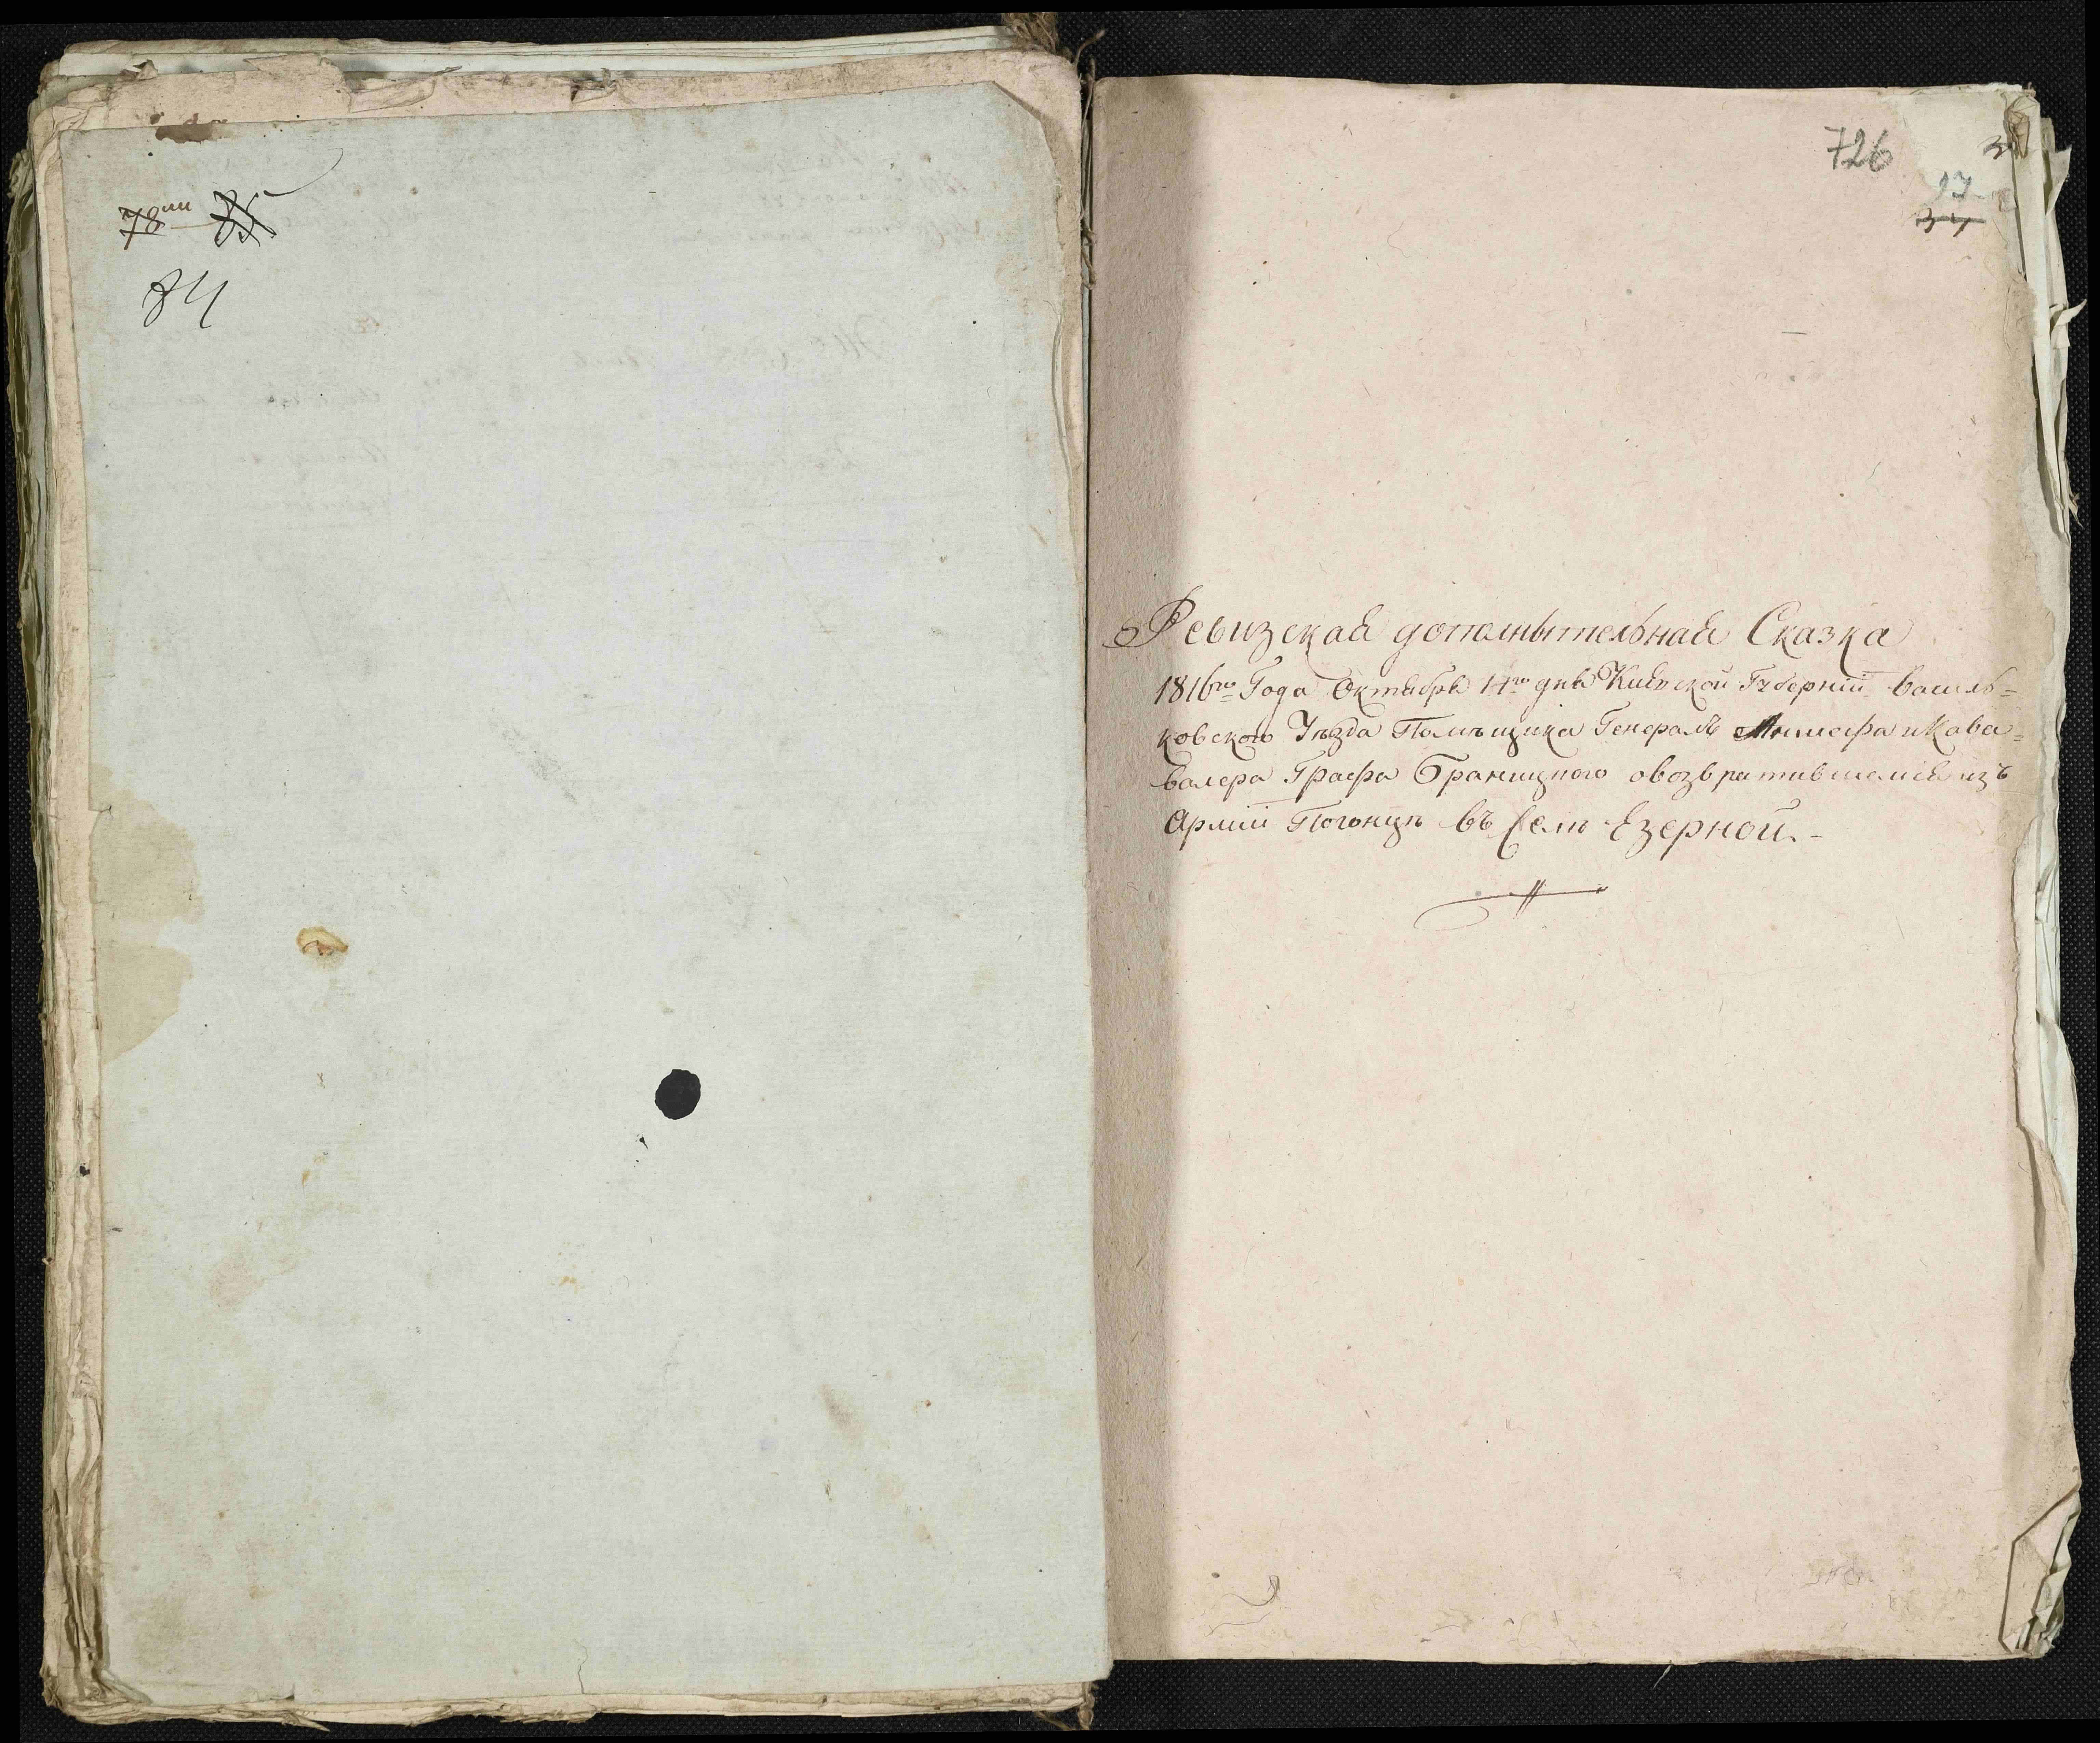 78ми 85
84
726
Ревизская дополнытельная Сказка
1816го Года Октября 14го дня Киевской Губернїи Василь=
ковского Уѣзда Помѣщика Генералъ Аншефа и Кава=
валера Графа Браницкого о возвратившемся изъ
Армїи Погонцѣ въ Селѣ Езерной.-